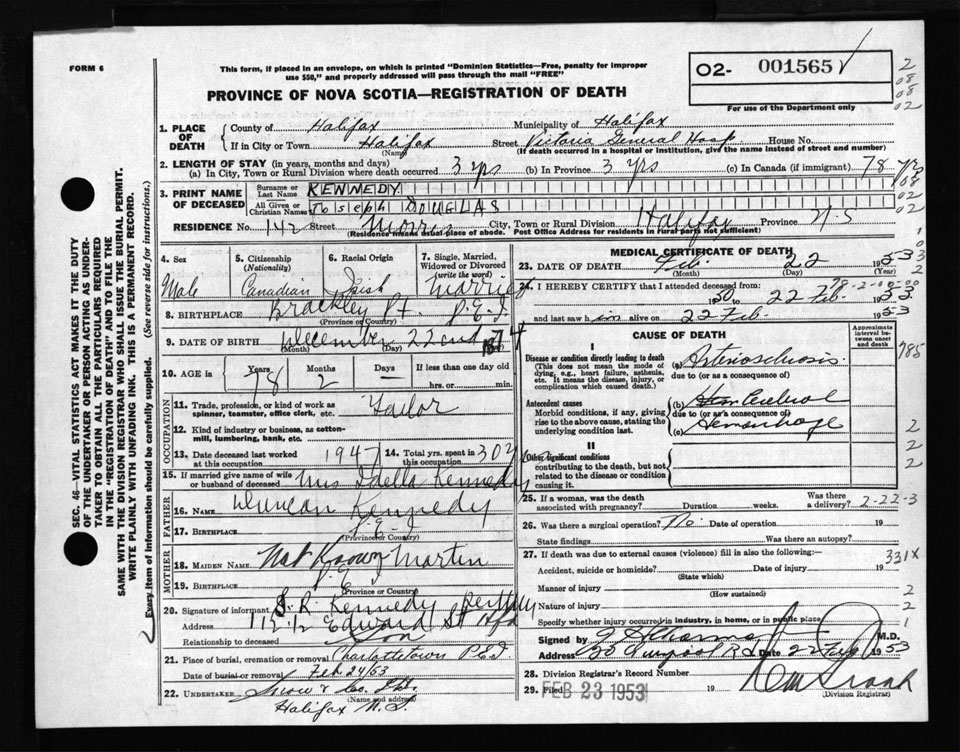 FORM 6
This form, if placed in an envelope, on which is printed "Dominion Statistics—Free, penalty for improper
use $50," and properly addressed will pass through the mail "FREE"
O2- 001565
2
08
08
02
PROVINCE OF NOVA SCOTIA—REGISTRATION OF DEATH
For use of the Department only
1. PLACE OF DEATH County of Halifax Municipality of Halifax
If in City or Town Halifax (Name) Street Victoria General Hosp House No.
(If death occurred in a hospital or institution, give the name instead of street and number)
2. LENGTH OF STAY (in years, months and days)
(a) In City, Town or Rural Division where death occurred 3 yrs (b) In Province 3 yrs (c) In Canada (if immigrant) 78 yrs
3. PRINT NAME OF DECEASED Surname or Last Name KENNEDY
All Given or Christian Names Joseph DOUGLAS
RESIDENCE No. 142 Street Morris City, Town or Rural Division Halifax Province N.S
(Residence means usual place of abode. Post Office Address for residents in rural parts not sufficient)
08
02
02
4. Sex Male
5. Citizenship (Nationality) Canadian
6. Racial Origin Irish
7. Single, Married, Widowed or Divorced (write the word) Married
8. BIRTHPLACE Brackley Pt. P.E.I.
(Province or Country)
9. DATE OF BIRTH December 22nd 1874
(Month) (Day)
10. AGE in Years 78 Months 2 Days — If less than one day
hrs. or min.
OCCUPATION
11. Trade, profession, or kind of work as spinner, teamster, office clerk, etc. Tailor
12. Kind of industry or business, as cotton-mill, lumbering, bank, etc.
13. Date deceased last worked at this occupation 1947 14. Total yrs. spent in this occupation 30
15. If married give name of wife or husband of deceased Mrs Idella Kennedy
FATHER
16. Name Duncan Kennedy
17. Birthplace P.E.I
(Province or Country)
MOTHER
18. MAIDEN NAME Not Known Martin
19. BIRTHPLACE P.E.I
(Province or Country)
20. Signature of informant R. Kennedy
Address 112 1/2 Edward St Hfx
Relationship to deceased Son
21. Place of burial, cremation or removal Charlottetown P.E.I.
Date of burial or removal Feb 24/53
22. UNDERTAKER Snow & Co. Ltd.
(Name and address)
Halifax N.S.
MEDICAL CERTIFICATE OF DEATH
23. DATE OF DEATH Feb. 22 1953
(Month) (Day) (Year)
24. I HEREBY CERTIFY that I attended deceased from:
50 to 22 Feb. 1953
and last saw him alive on 22 Feb. 1953
CAUSE OF DEATH
Approximate interval between onset and death
I
Disease or condition directly leading to death
(This does not mean the mode of dying, e.g., heart failure, asthenia, etc. It means the disease, injury, or complication which caused death.)
(a)
due to (or as a consequence of)
985
Antecedent causes
Morbid conditions, if any, giving rise to the above cause, stating the underlying condition last.
(b) Cerebral
due to (or as a consequence of)
(c) Hemorrhage
II
Other significant conditions
contributing to the death, but not related to the disease or condition causing it.
2
2
2
25. If a woman, was the death associated with pregnancy? Duration weeks. Was there a delivery?
2-22-3
26. Was there a surgical operation? No. Date of operation 19
State findings Was there an autopsy?
27. If death was due to external causes (violence) fill in also the following:—
331X
Accident, suicide or homicide? Date of injury 19
(State which)
Manner of injury
(How sustained)
2
Nature of injury
2
Specify whether injury occurred in industry, in home, or in public place
1
Signed by M.D.
Address Date 22 Feb 1953
28. Division Registrar's Record Number
29. Filed FEB 23 1953 19
(Division Registrar)
SEC. 46—VITAL STATISTICS ACT MAKES IT THE DUTY
OF THE UNDERTAKER OR PERSON ACTING AS UNDER-
TAKER TO OBTAIN ALL THE PARTICULARS REQUIRED
IN THE "REGISTRATION OF DEATH" AND TO FILE THE
SAME WITH THE DIVISION REGISTRAR WHO SHALL ISSUE THE BURIAL PERMIT.
WRITE PLAINLY WITH UNFADING INK. THIS IS A PERMANENT RECORD.
Every item of information should be carefully supplied. (See reverse side for instructions.)